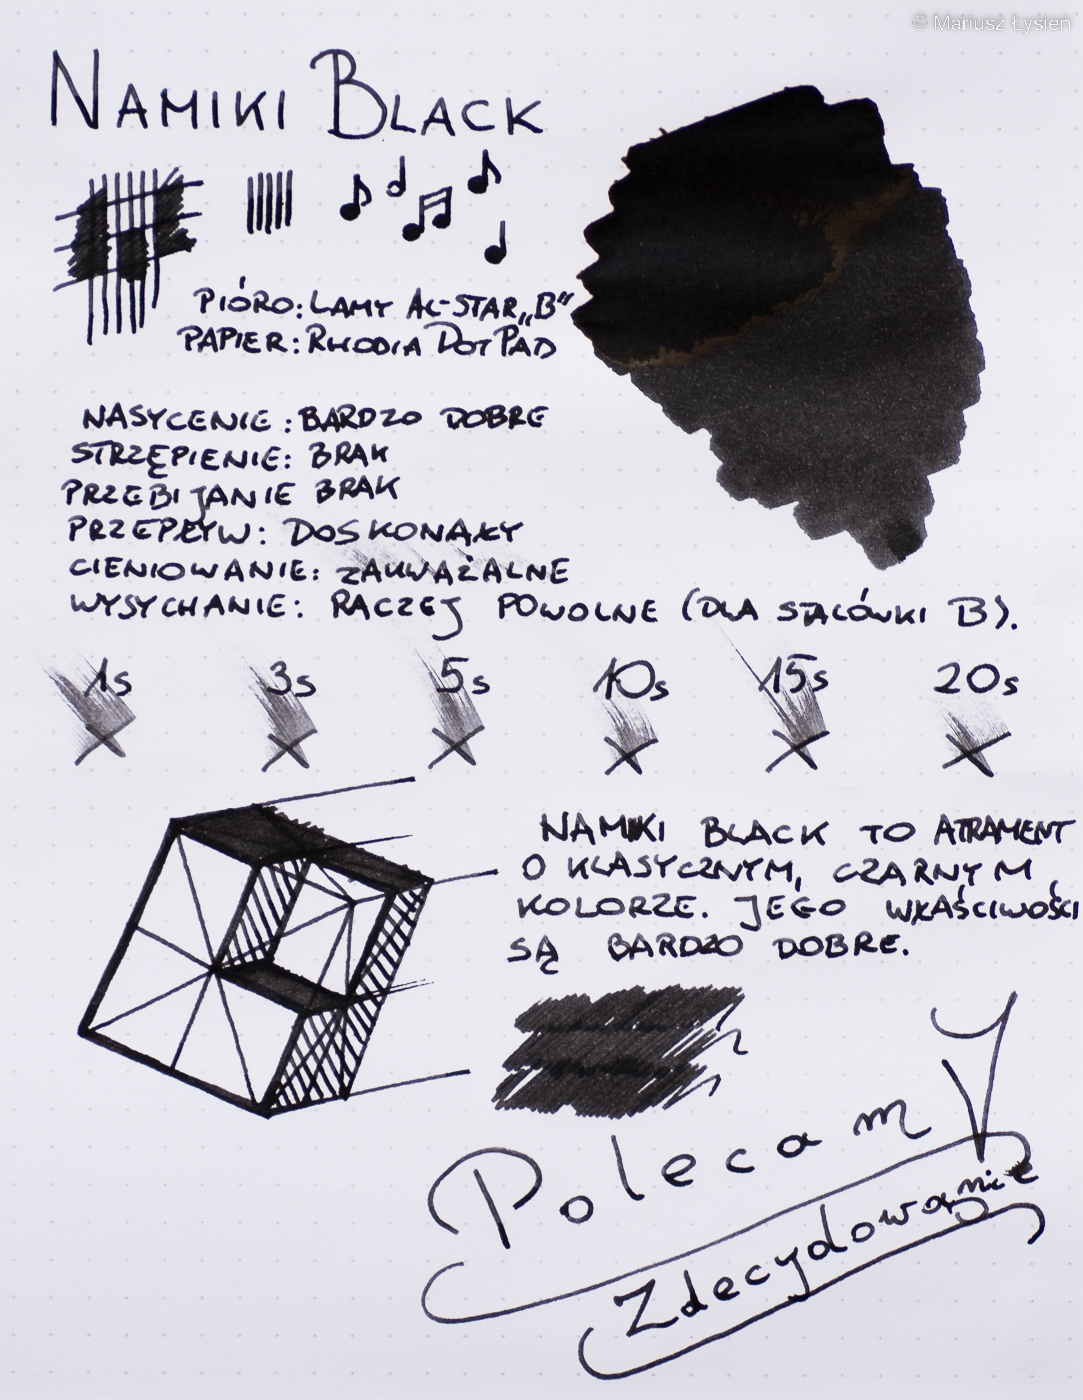 © Mariusz Łysień
NAMIKI BLACK
PIÓRO: LAMY AL-STAR „B”
PAPIER: RHODIA DOTPAD
NASYCENIE: BARDZO DOBRE
STRZĘPIENIE: BRAK
PRZEBIJANIE BRAK
PRZEPŁYW: DOSKONAŁY
CIENIOWANIE: ZAUWAŻALNE
WYSYCHANIE: RACZEJ POWOLNE (DLA STALÓWKI B).
1s 3s 5s 10s 15s 20s
NAMIKI BLACK TO ATRAMENT
O KLASYCZNYM, CZARNYM
KOLORZE. JEGO WŁAŚCIWOŚCI
SĄ BARDZO DOBRE.
Polecam
Zdecydowanie